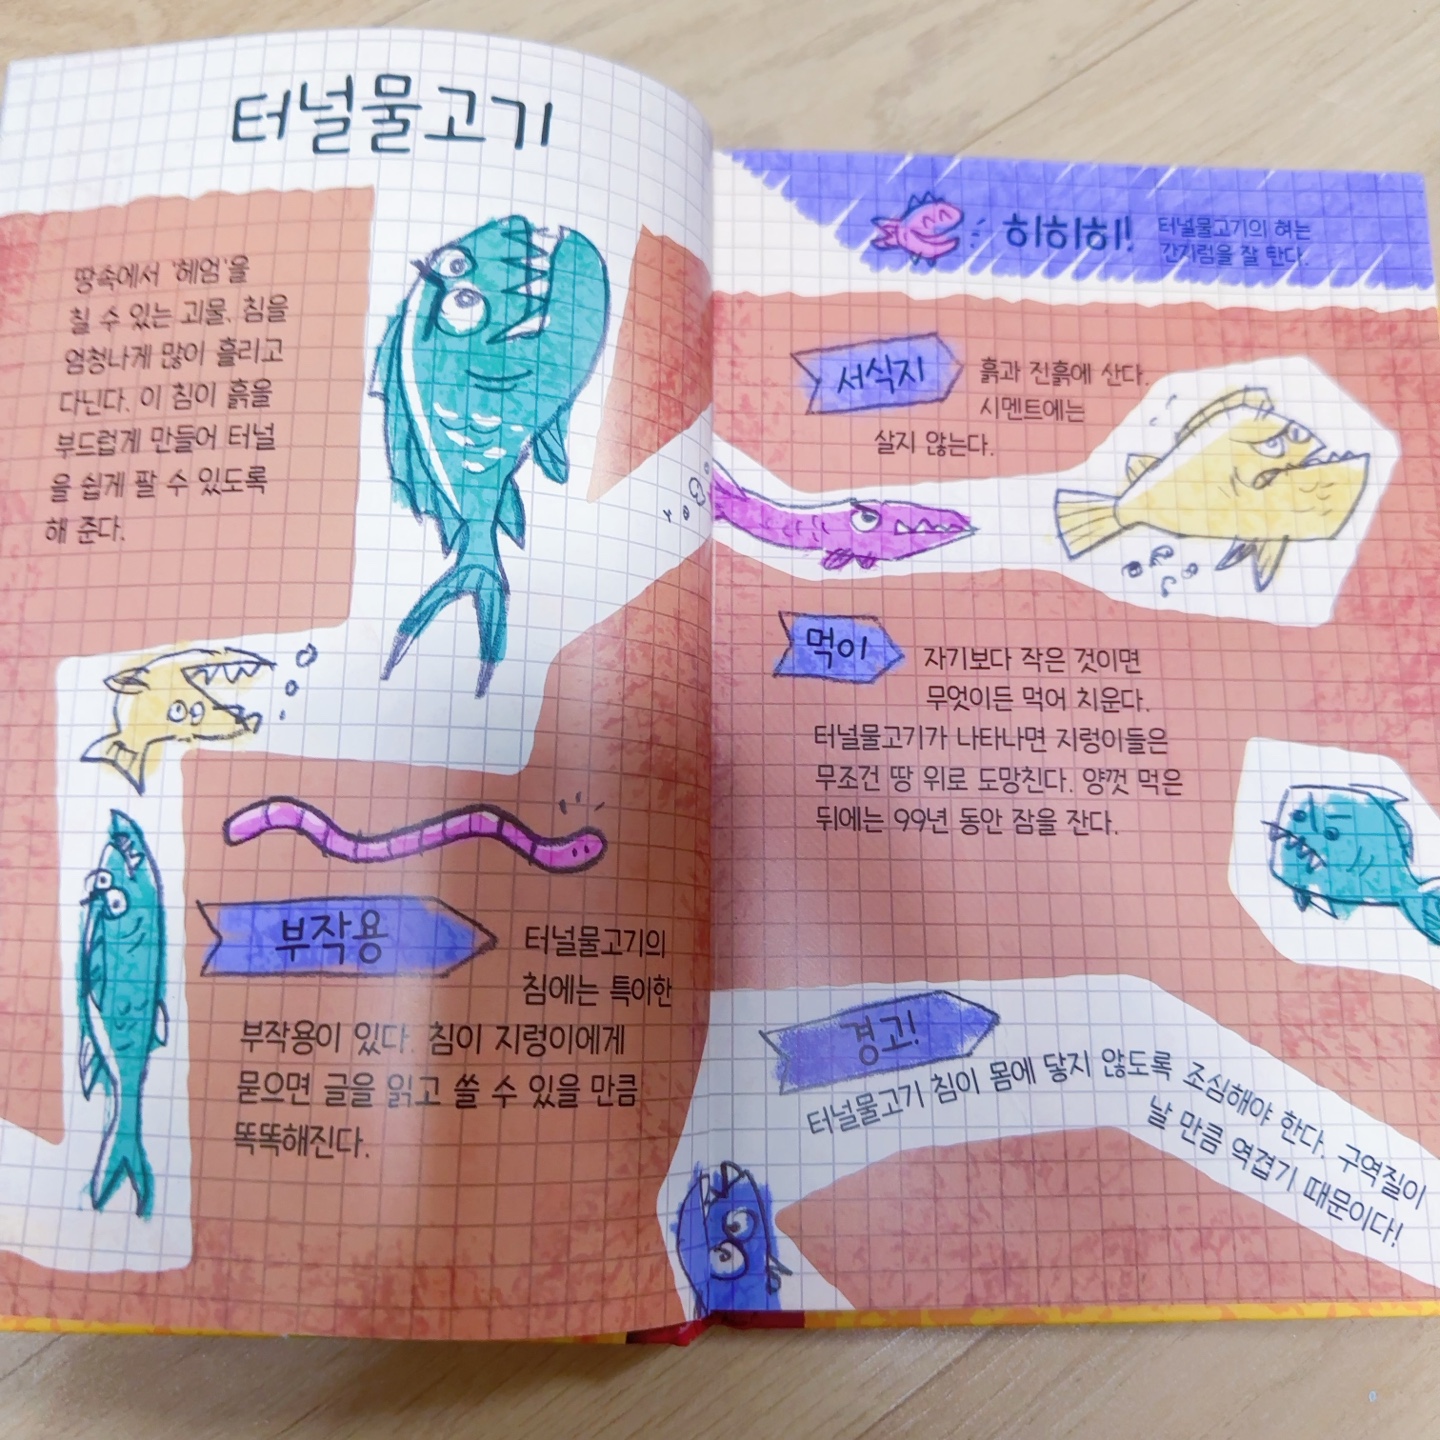 터널물고기
땅속에서 '헤엄'을
칠 수 있는 괴물. 침을
엄청나게 많이 흘리고
다닌다. 이 침이 흙을
부드럽게 만들어 터널
을 쉽게 팔 수 있도록
해 준다.
부작용
터널물고기의
침에는 특이한
부작용이 있다. 침이 지렁이에게
묻으면 글을 읽고 쓸 수 있을 만큼
똑똑해진다.
히히히!
터널물고기의 혀는
간지럼을 잘 탄다.
서식지
흙과 진흙에 산다.
시멘트에는
살지 않는다.
먹이
자기보다 작은 것이면
무엇이든 먹어 치운다.
터널물고기가 나타나면 지렁이들은
무조건 땅 위로 도망친다. 양껏 먹은
뒤에는 99년 동안 잠을 잔다.
경고!
터널물고기 침이 몸에 닿지 않도록 조심해야 한다. 구역질이
날 만큼 역겹기 때문이다!